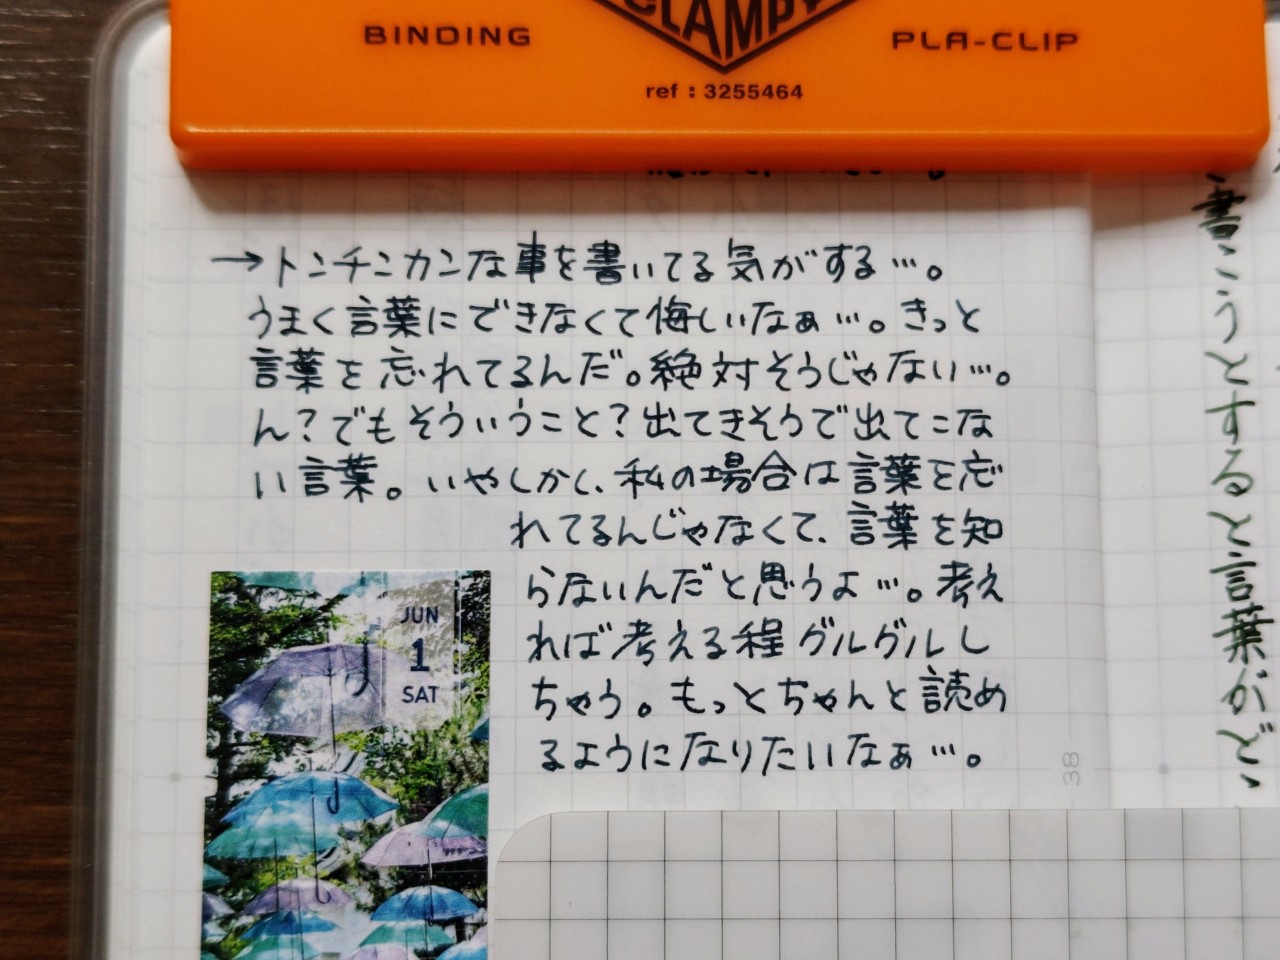 CLAMPY
BINDING
PLA-CLIP
ref : 3255464
→トンチンカンな事を書いてる気がする…。
うまく言葉にできなくて悔しいなぁ…。きっと
言葉を忘れてるんだ。絶対そうじゃない…。
ん？でもそういうこと？出てきそうで出てこな
い言葉。いやしかし、私の場合は言葉を忘
れてるんじゃなくて、言葉を知
らないんだと思うよ…。考え
れば考える程グルグルし
ちゃう。もっとちゃんと読め
るようになりたいなぁ…。
JUN
1
SAT
38
書こうとすると言葉がど、